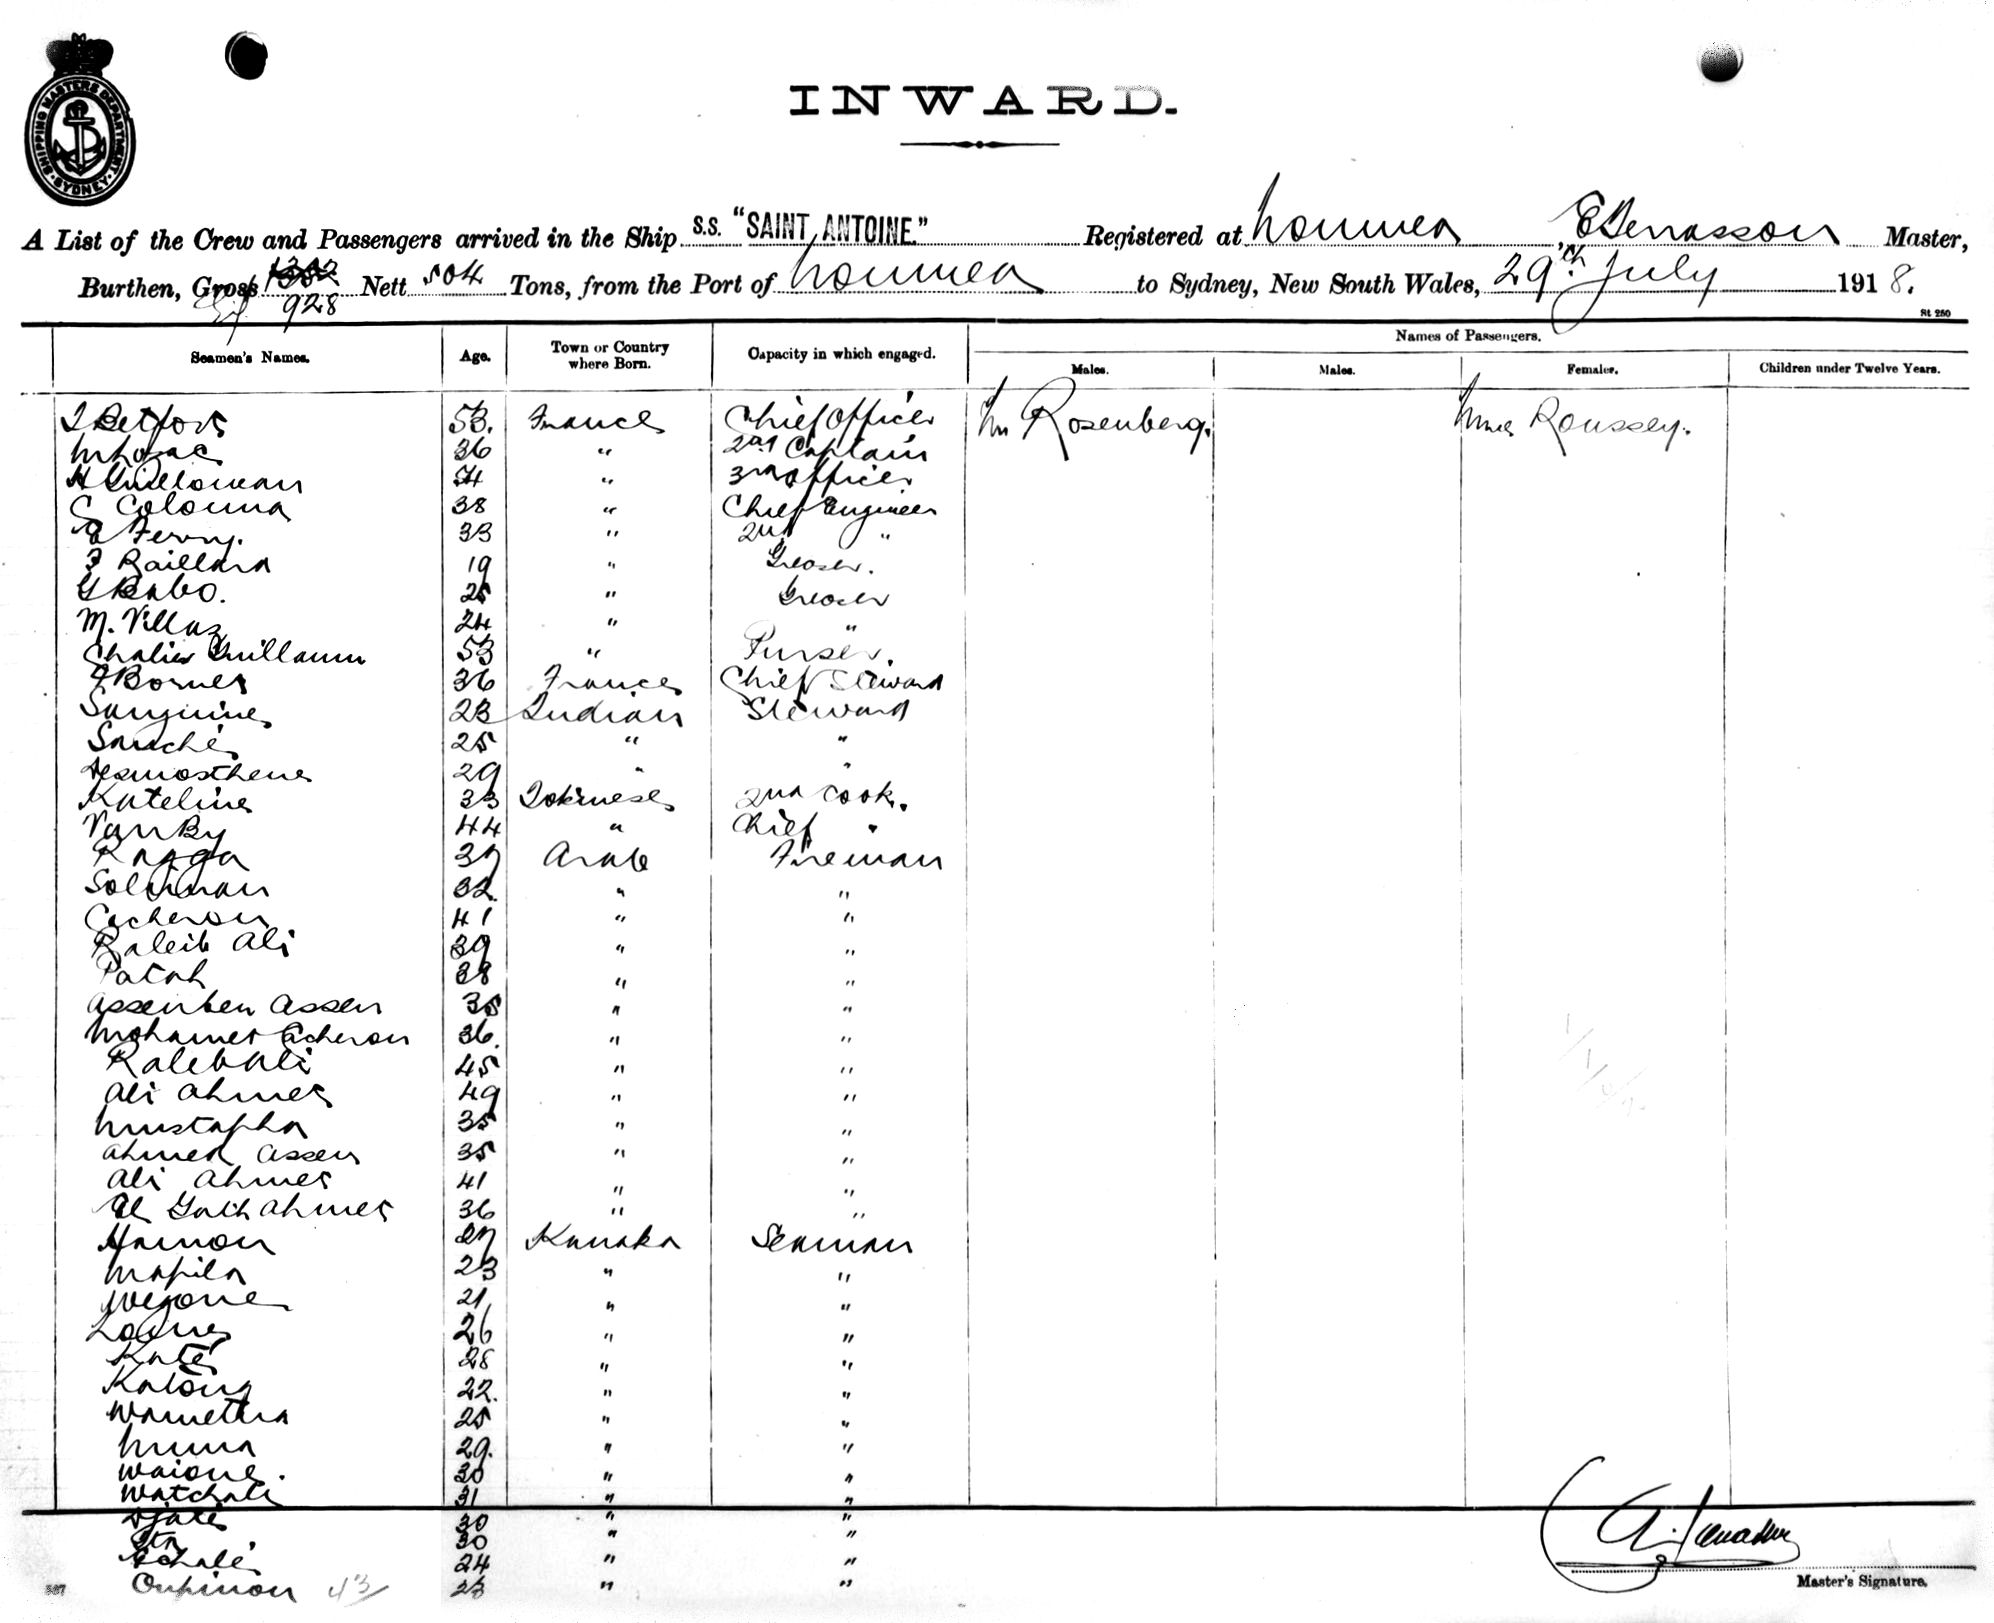 SHIPPING MASTERS DEPARTMENT SYDNEY
INWARD.
A List of the Crew and Passengers arrived in the Ship S.S. "SAINT ANTOINE." Registered at Noumea Master,
Burthen, Gross 1302 Nett 504 Tons, from the Port of Noumea to Sydney, New South Wales, 29th July 1918.
928
St 250
Seamen's Names. Age. Town or Country where Born. Capacity in which engaged. Names of Passengers.
Males. Males. Females. Children under Twelve Years.
53. France Chief Officer Mr Rosenberg. Mme Roussey.
36 " 2nd Captain
54 " 3rd officer
C Colonna 38 " Chief Engineer
E Ferry. 33 " 2nd "
Raillard 19 " Greaser.
G Babo. 25 " Greaser
M. Villaz 24 " "
Charles Guillaum 53 " Purser.
Bornes 36 France Chief Steward
Sanguine 23 Indian Steward
Sauché 25 " "
Demosthene 29 " "
Kateline 33 Tokinese 2nd Cook.
Van By 44 " Chief "
Ragga 37 Arab Fireman
Soliman 32. " "
Cacheron 41 " "
Raleib Ali 39 " "
Patah 38 " "
Assenben Assen 35 " "
Mohamet Acheron 36. " "
Raleb Ali 45 " "
Ali Ahmet 49 " "
Mustapha 35 " "
Ahmed Assen 35 " "
Ali Ahmet 41 " "
Ahmet 36 " "
Hamon 27 Kanaka Seaman
Mapila 23 " "
Wegone 21 " "
Loeme 26 " "
Katé 28 " "
Katoing 22. " "
Wametha 25 " "
Numa 29. " "
Waione. 30 " "
Watchali 31 " "
Djate 30 " "
30 " "
24 " "
Oupinon 43 23 " "
Master's Signature.
587